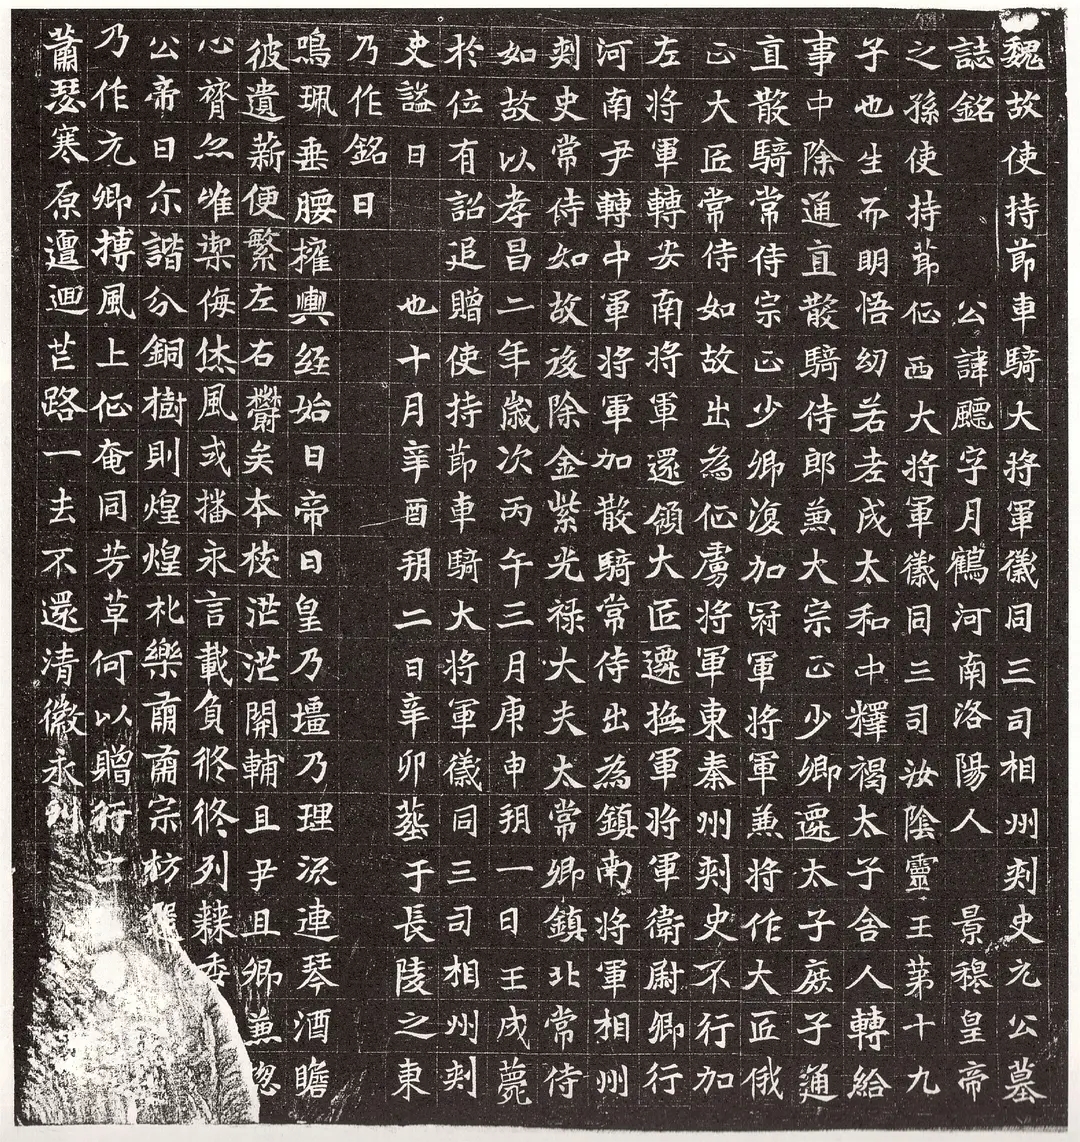 魏故使持節車騎大將軍儀同三司相州刾史元公墓
誌銘 公諱飉字月鶴河南洛陽人 景穆皇帝
之孫使持節征西大將軍儀同三司汝陰靈王第十九
子也生而明悟幼若老成太和中釋褐太子舍人轉給
事中除通直散騎侍郎兼大宗正少卿遷太子庶子通
直散騎常侍宗正少卿復加冠軍將軍兼將作大匠俄
正大匠常侍如故出為征虜將軍東秦州刾史不行加
左將軍轉安南將軍還領大匠遷撫軍將軍衛尉卿行
河南尹轉中軍將軍加散騎常侍出為鎮南將軍相州
刾史常侍如故後除金紫光祿大夫太常卿鎮北常侍
如故以孝昌二年歲次丙午三月庚申朔一日壬戌薨
於位有詔追贈使持節車騎大將軍儀同三司相州刾
史謚曰 也十月辛酉朔二日辛卯葬于長陵之東
乃作銘曰
鳴珮垂腰擁輿經始曰帝曰皇乃壃乃理流連琴酒瞻
彼遺薪便繁左右欝矣本枝茫茫關輔且尹且卿兼
心膂尒唯禦侮烋風或播永言載負終終列棘
公帝曰尒諧分銅樹則煌煌札樂肅肅宗枋
乃作元卿摶風上征奄同芳草何以贈行
蕭瑟寒原邅迴芒路一去不還清徽永